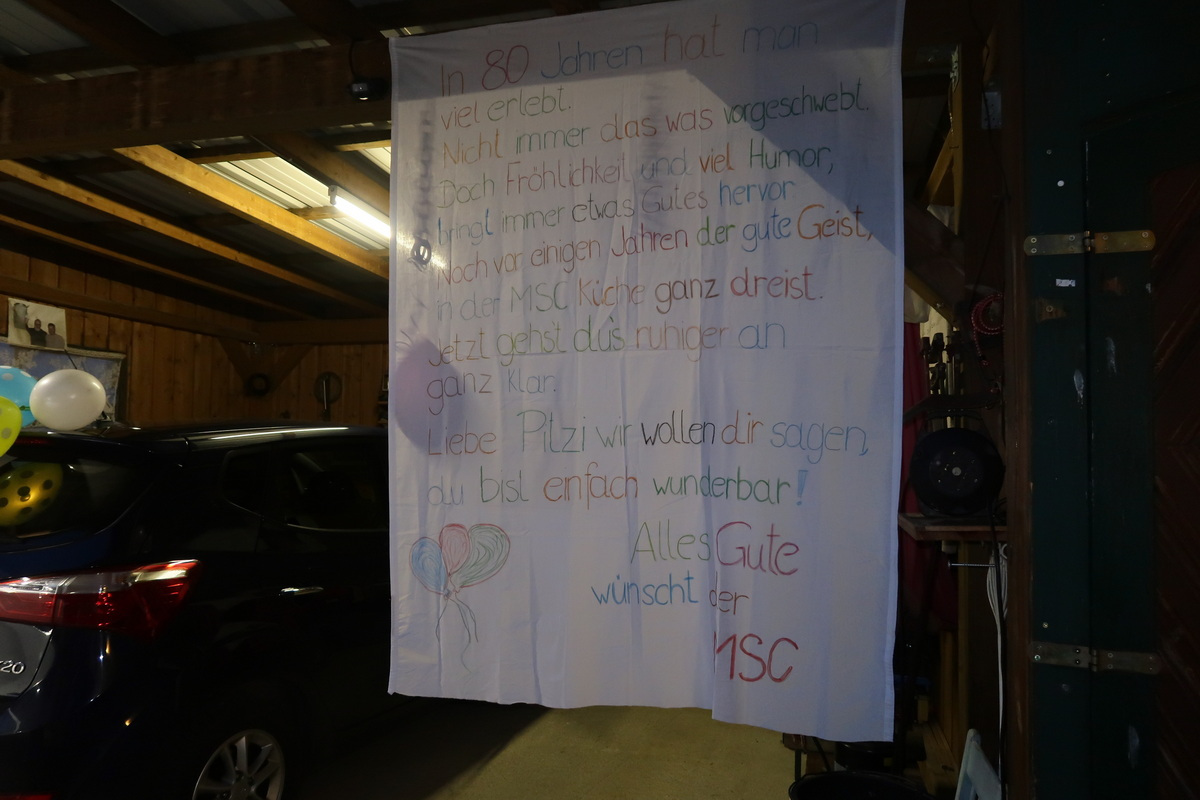 In 80 Jahren hat man
viel erlebt.
Nicht immer das was vorgeschwebt.
Doch Fröhlichkeit und viel Humor,
bringt immer etwas Gutes hervor.
Noch vor einigen Jahren der gute Geist,
in der MSC Küche ganz dreist.
Jetzt gehst du's ruhiger an
ganz klar.
Liebe Pitzi wir wollen dir sagen,
du bist einfach wunderbar!
Alles Gute
wünscht der
MSC